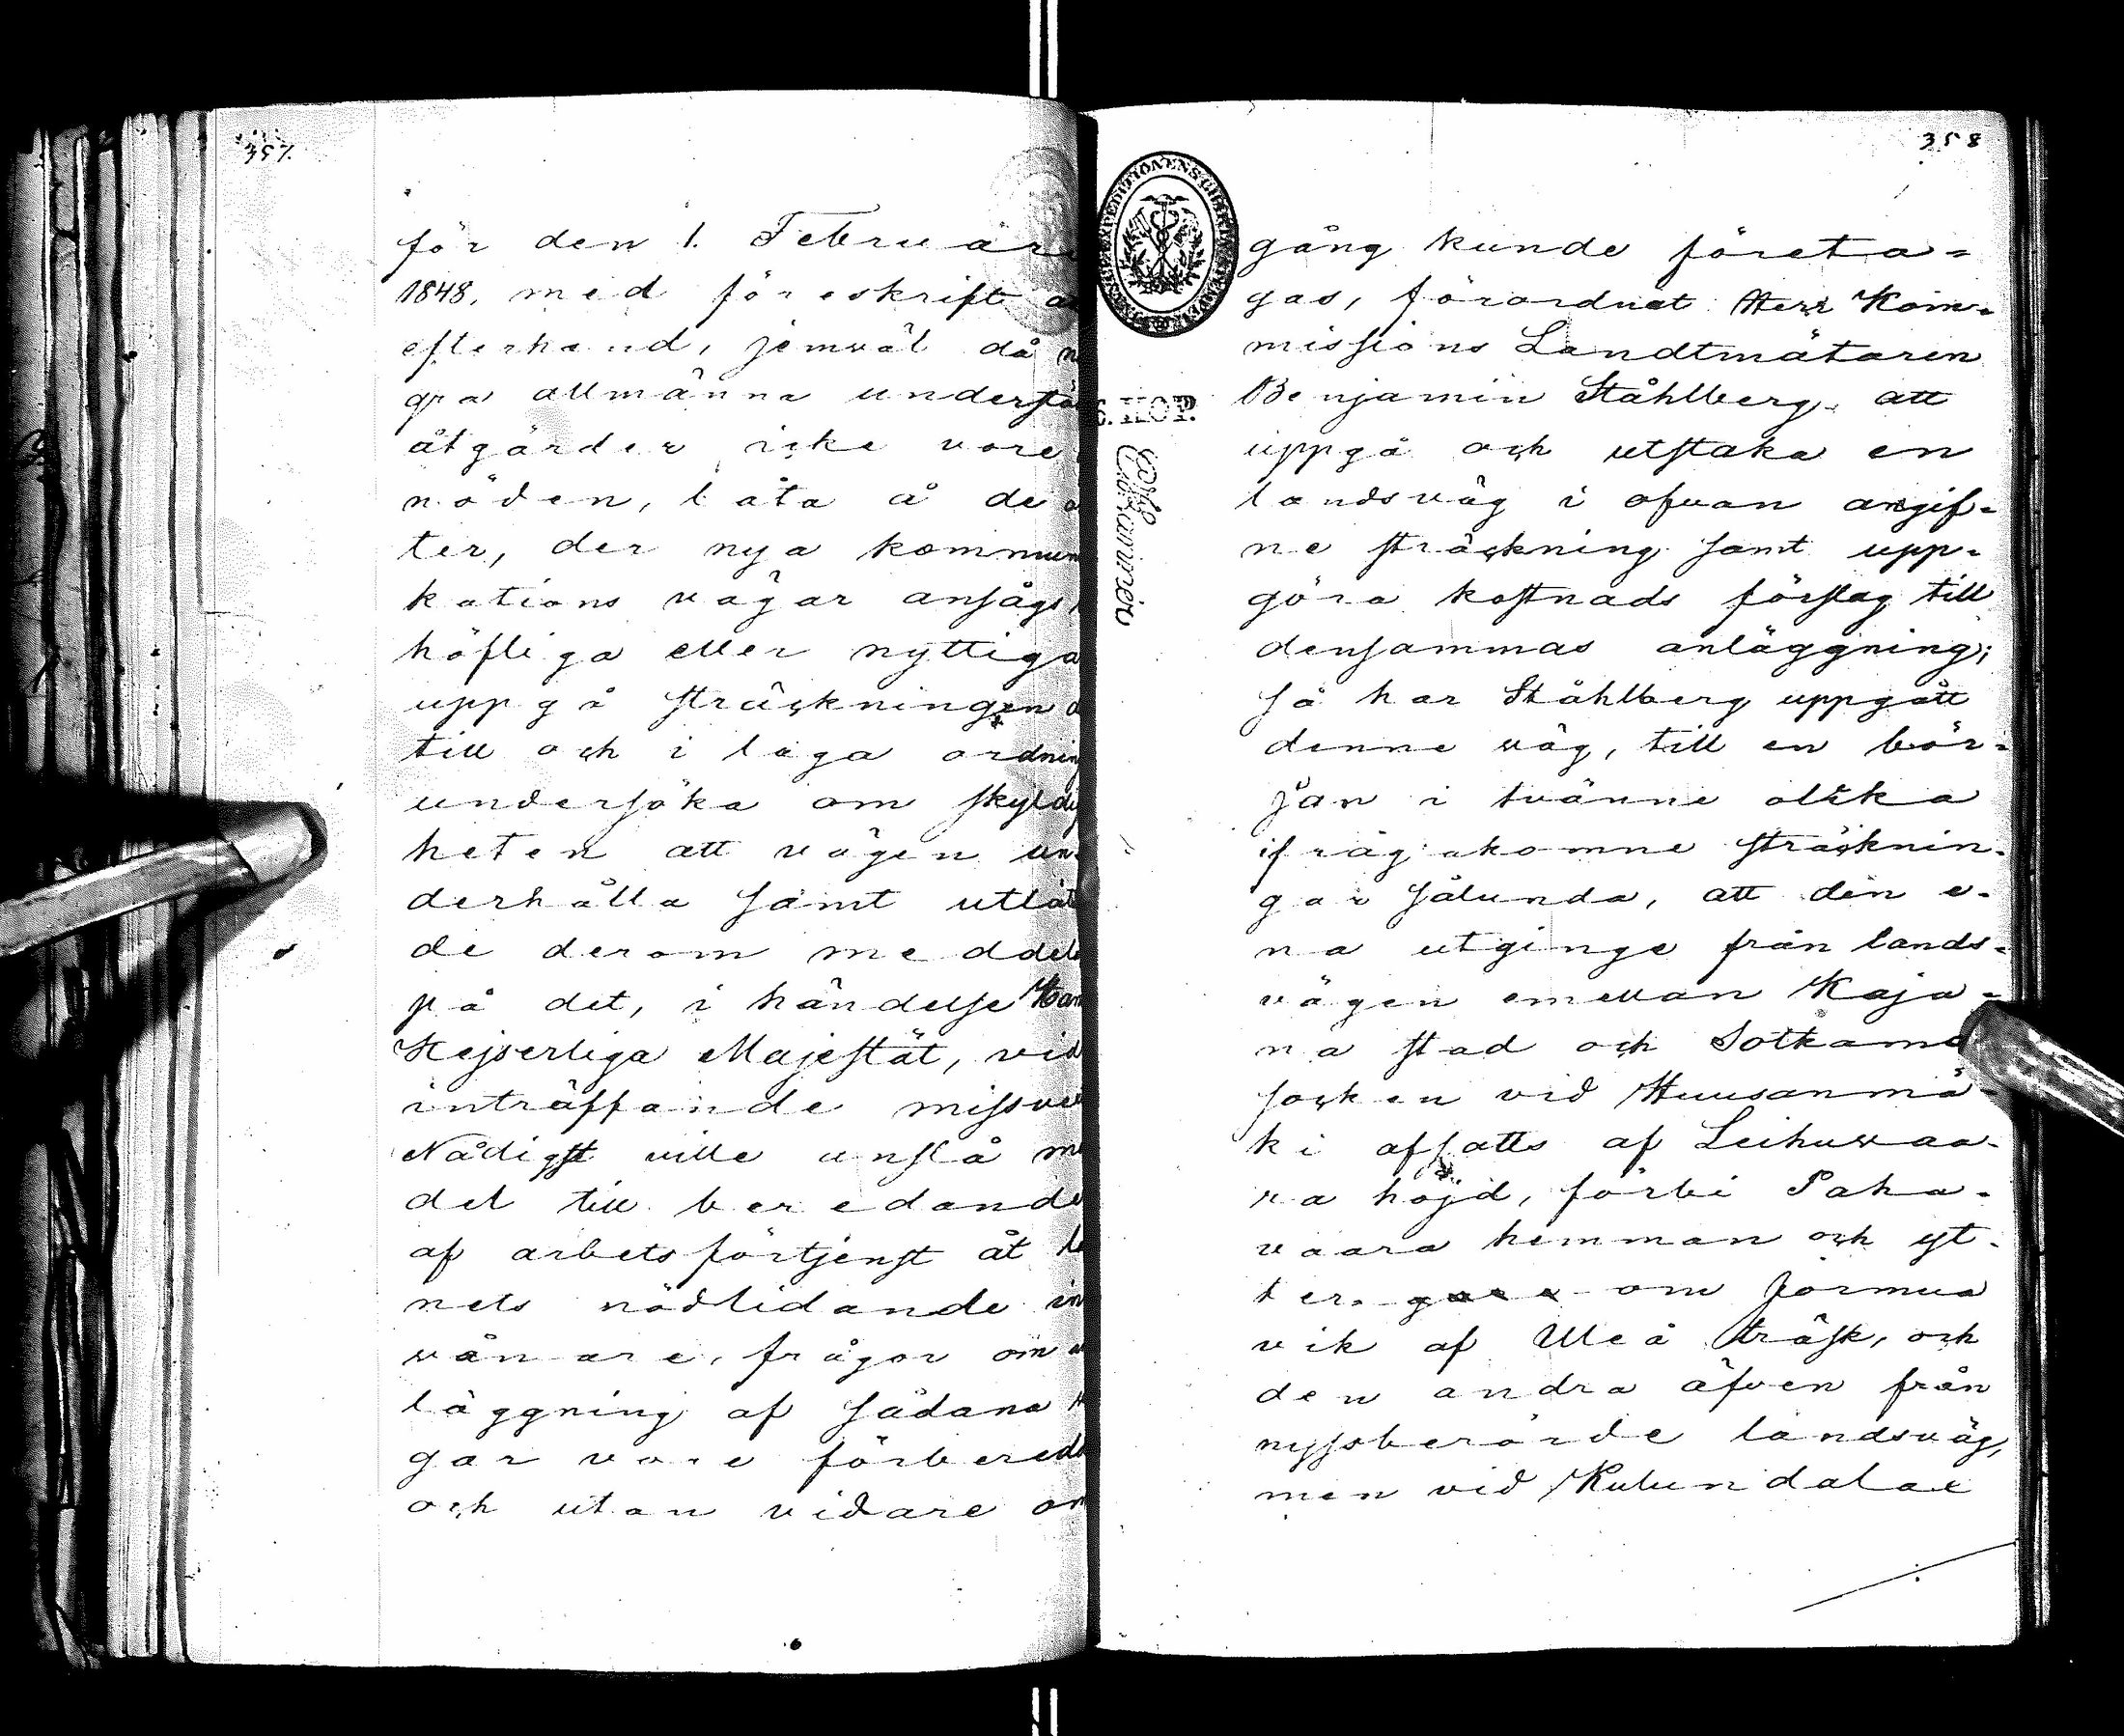 357.
för den 1. Februari
1848, med föreskrift a
efterhand, jemwäl då n
gra allmänna underſtö
åtgärder icke vore
nöden, låta å de o
ter, der nya kommun
kations vägar anſågs
höfliga eller nyttiga
uppgå sträckningen d
till och i laga ordning
underſöka om ſkyldig
heten att vägen un-
derhålla ſamt utlåt
de derom meddela
på det, i händelse Hans
Kejserliga Majeſtät, vid
inträffande miſsvex
Nådigſt ville anſlå me
del till beredande
af arbetsförtjenſt åt lä
nets nödlidande in
vånare, frågor om a
läggning af ſådana v
gar vore förberedd
och utan vidare om
358
gång kunde företa-
gas, förordnat Herr Kom-
miſsions Landtmätaren
Benjamin Ståhlberg, att
uppgå och utſtaka en
landsväg i ofvan angif-
ne ſträckning ſamt upp-
göra koſtnads förſlag till
denſammas anläggning;
ſå har Ståhlberg uppgått
denne väg, till en bör-
jan i tvänne olika
ifrågakomne ſträcknin-
gar ſålunda, att den e-
na utginge från lands-
vägen emellan Kaja-
na ſtad och Sotkamo
ſocken vid Huusanmä-
ki afſatts af Leihuwaa-
ra höjd, förbi Paha-
vaara hemman och yt-
ter- om Jormua
vik af Uleå träſk, och
den andra äfven från
nyſsberörde landsväg,
men vid Kulundalae
6. KOP.